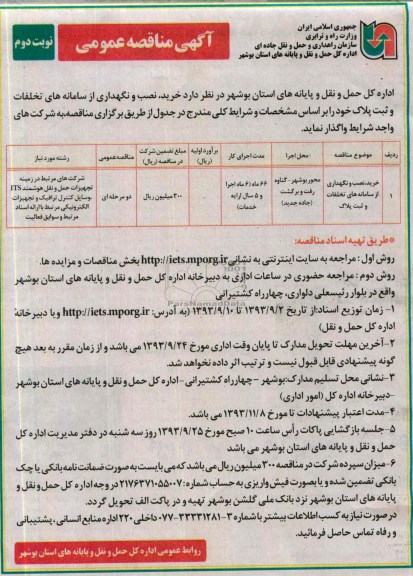 جمهوری اسلامی ایران
وزارت راه و ترابری
سازمان راهداری و حمل و نقل جاده ای
اداره کل حمل و نقل و پایانه های استان بوشهر
آگهی مناقصه عمومی
نوبت دوم
اداره کل حمل و نقل و پایانه های استان بوشهر در نظر دارد خرید، نصب و نگهداری از سامانه های تخلفات
و ثبت پلاک خود را بر اساس مشخصات و شرایط کلی مندرج در جدول از طریق برگزاری مناقصه،به شرکت های
واجد شرایط واگذار نماید.
ردیف
موضوع مناقصه
محل اجرا
مدت اجرای کار
برآورد اولیه (ریال)
مبلغ تضمین شرکت در مناقصه (ریال)
مناقصه عمومی
رشته مورد نیاز
۱
خرید،نصب و نگهداری از سامانه های تخلفات و ثبت پلاک
محور بوشهر - گناوه رفت و برگشت (جاده جدید)
۶۶ ماه (۶ ماه اجرا و ۵ سال ارایه خدمات)
۳۰۰ میلیون ریال
دو مرحله ای
شرکت های مرتبط در زمینه تجهیزات حمل و نقل هوشمند ITS ،وسایل کنترل ترافیک و تجهیزات الکترونیکی مرتبط با ارائه اسناد مرتبط و سوابق فعالیت
*طریق تهیه اسناد مناقصه:
روش اول : مراجعه به سایت اینترنتی به نشانی http://iets.mporg.ir بخش مناقصات و مزایده ها.
روش دوم : مراجعه حضوری در ساعات اداری به دبیرخانه اداره کل حمل و نقل و پایانه های استان بوشهر
واقع در بلوار رئیسعلی دلواری، چهارراه کشتیرانی
۱- زمان توزیع اسناد:از تاریخ ۱۳۹۳/۹/۲ تا ۱۳۹۳/۹/۱۰ (به آدرس: http://iets.mporg.ir ویا دبیرخانه
اداره کل حمل و نقل)
۲-آخرین مهلت تحویل مدارک تا پایان وقت اداری مورخ ۱۳۹۳/۹/۲۴ می باشد و از زمان مقرر به بعد هیچ
گونه پیشنهادی قابل قبول نیست و ترتیب اثر داده نخواهد شد.
۳-نشانی محل تسلیم مدارک:بوشهر -چهارراه کشتیرانی- اداره کل حمل و نقل و پایانه های استان بوشهر
-دبیرخانه اداره کل (امور اداری)
۴-مدت اعتبار پیشنهادات تا مورخ ۱۳۹۳/۱۱/۸ می باشد.
۵-جلسه بازگشایی پاکات رأس ساعت ۱۰ صبح مورخ ۱۳۹۳/۹/۲۵ روز سه شنبه در دفتر مدیریت اداره کل
حمل و نقل و پایانه های استان بوشهر می باشد
۶-میزان سپرده شرکت در مناقصه ۳۰۰ میلیون ریال می باشد که می بایست به صورت ضمانت نامه بانکی یا چک
بانکی تضمین شده و یا بصورت فیش واریزی به حساب شماره: ۲۱۷۶۳۷۱۰۵۵۰۰۷ در وجه اداره کل حمل و نقل و
پایانه های استان بوشهر نزد بانک ملی گلشن بوشهر تهیه و در پاکت الف تحویل گردد.
در صورت نیاز به کسب اطلاعات بیشتر با شماره ۳-۳۳۳۳۱۲۸۱-۰۷۷ داخلی ۲۲۰ اداره منابع انسانی، پشتیبانی
و رفاه تماس حاصل فرمائید.
روابط عمومی اداره کل حمل و نقل و پایانه های استان بوشهر